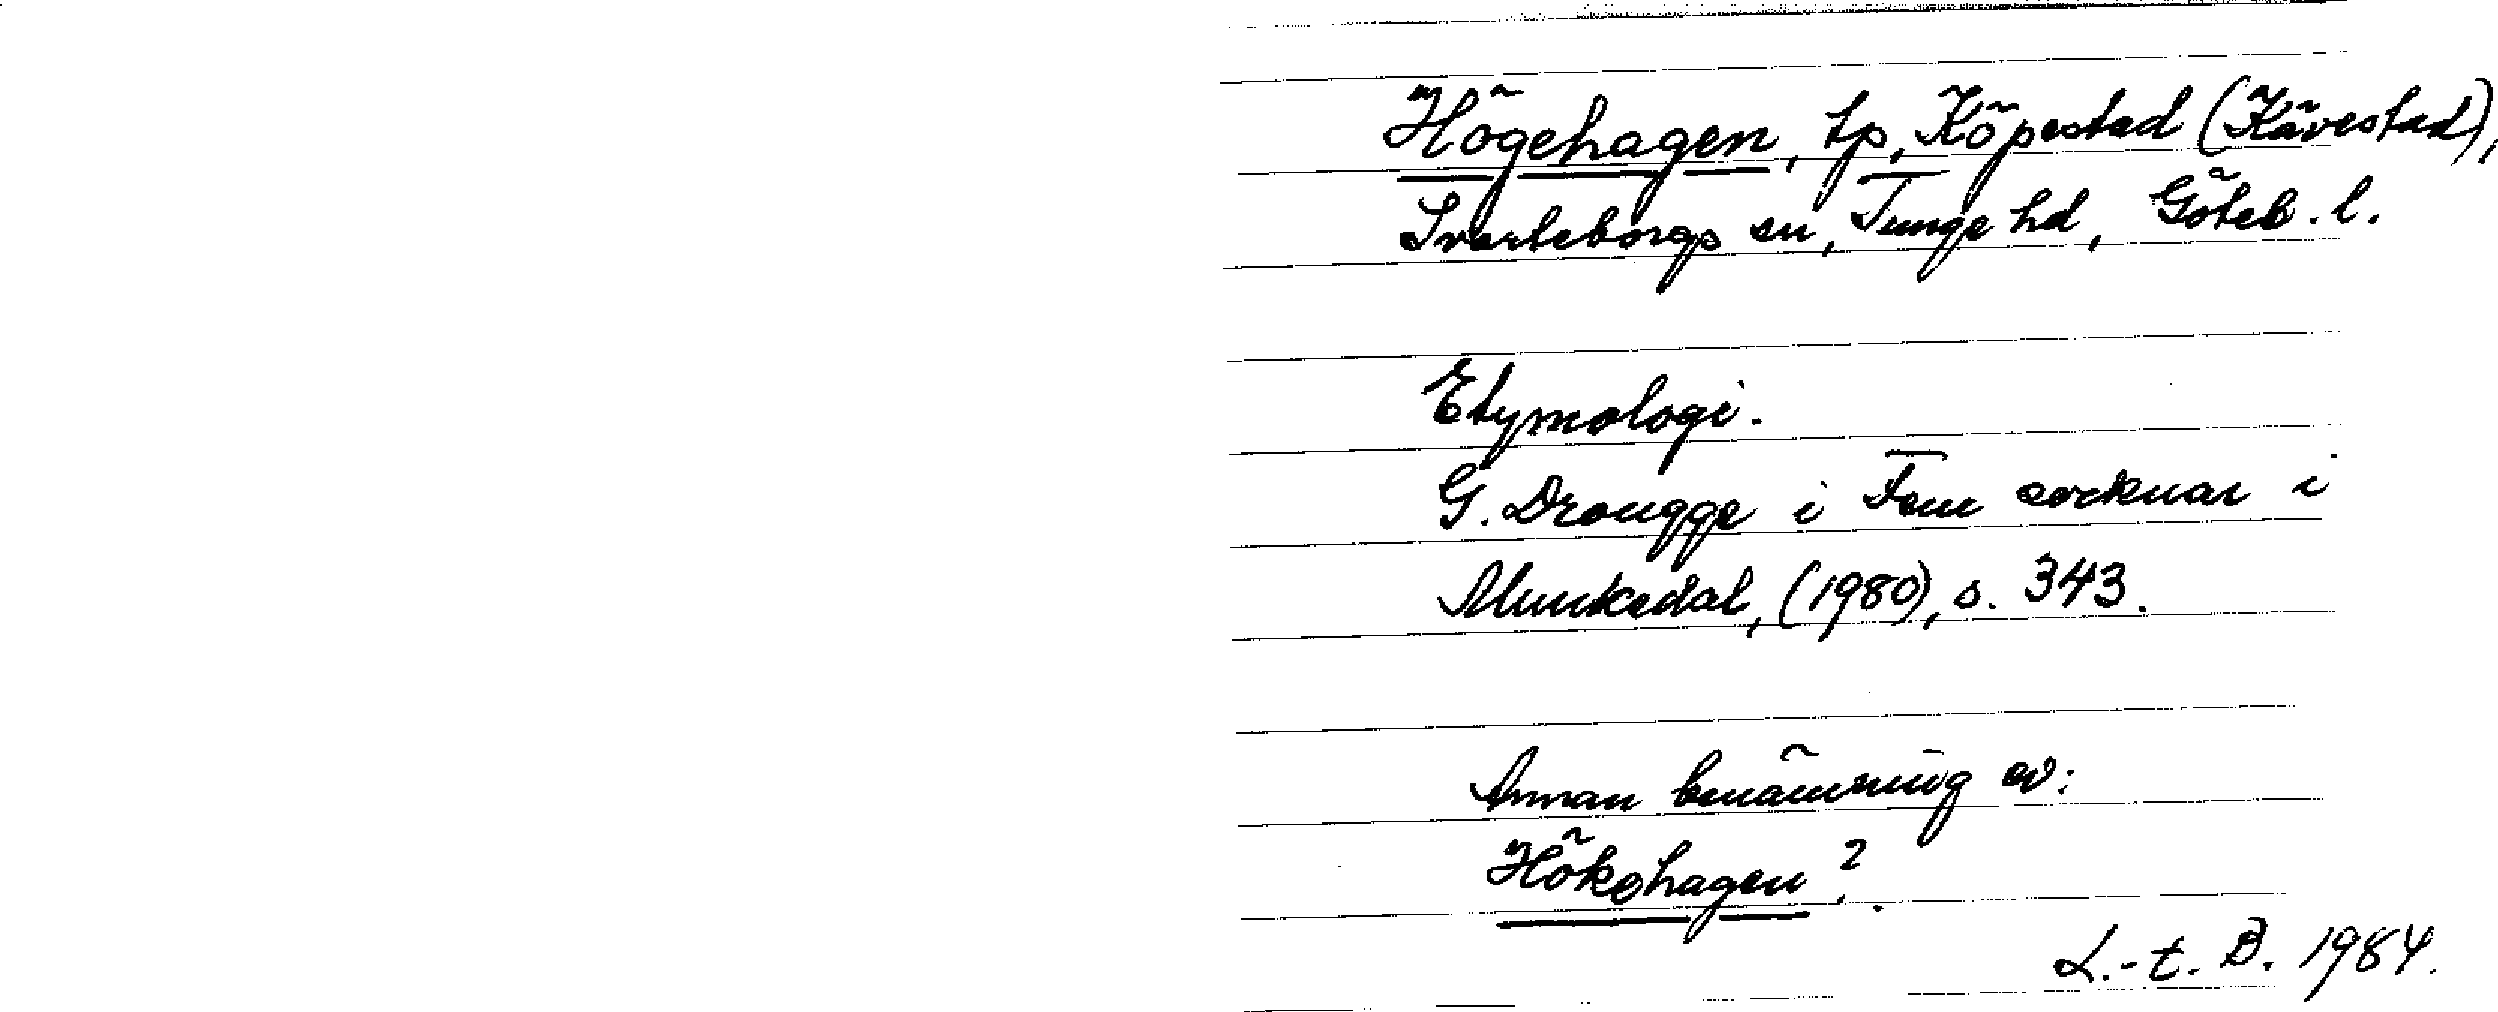 Högehagen, tp, Köpestad (Kävestad),
Svarteborgs sn, Tunge hd, Göteb. l.
Etymologi.
G. Drougge i Fem socknar i
Munkedal, (1980), s. 343.
Annan benämning av:
Hökehagen?.
L.-t. B. 1984.